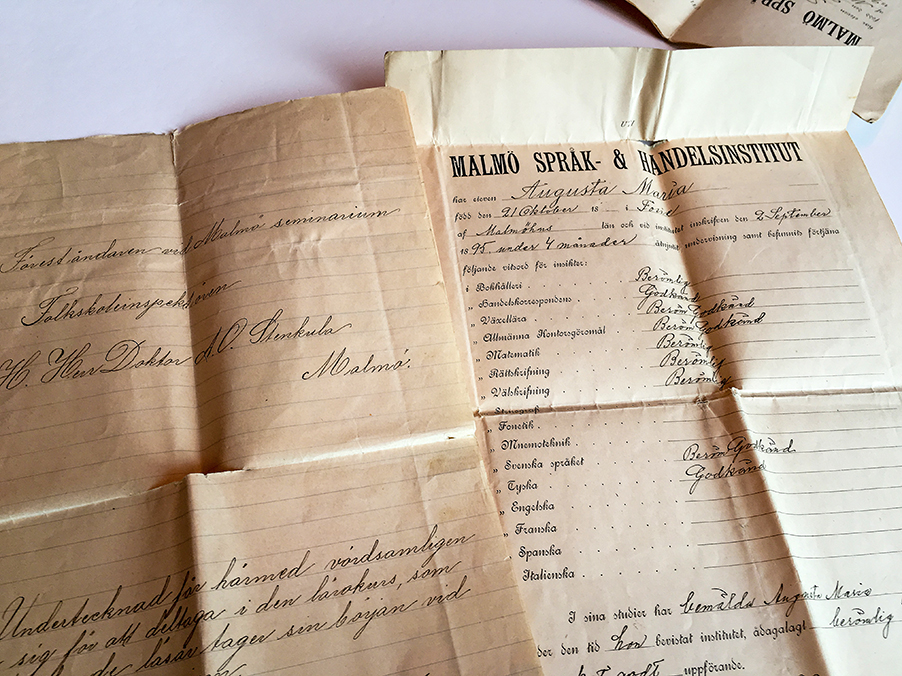 Föreståndaren vid Malmö seminarium
Folkskoleinspektören
H. Herr Doktor A. O. Stenkula
Malmö.
Undertecknad får härmed vördsamligen
sig för att deltaga i den lärokurs, som
läsår tager sin början vid
MALMÖ SPRÅK- & HANDELSINSTITUT
har eleven Augusta Maria
född den 21 Oktober 18 i Fosie
af Malmöhus län och vid institutet inskrifven den 2 September
1895 under 4 månader åtnjutit undervisning samt befunnits förtjäna
följande vitsord för insikter:
i Bokhålleri . Berömlig
„ Handelskorrespondens . Godkänd
„ Växellära . . . Beröm Godkänd
„ Allmänna Kontorsgöromål Beröm Godkänd
„ Matematik . . . Berömlig
„ Rättskrifning . . . Berömlig
„ Välskrifning . . . Berömlig
„ Stenografi
„ Fonetik .
„ Mnemoteknik .
„ Svenska språket . . Beröm Godkänd
„ Tyska . . . . Godkänd
„ Engelska . . . .
„ Franska . . . .
Spanska . . . .
Italienska . . . .
I sina studier har bemälda Augusta Maria
der den tid hon bevistat institutet, ådagalagt berömlig
godt uppförande.
MALMÖ SPRÅ